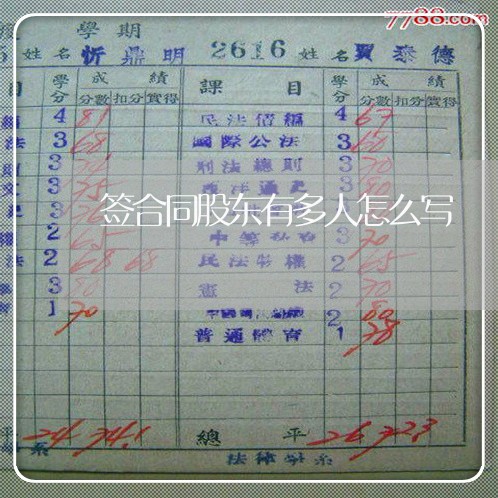 7788.com
學期
姓名 忻鼎明 2616 姓名 賈泰德
目 學分 成績 課目 學分 成績
分數 扣分 實得 分數 扣分 實得
4 81 民法債編 4 67
法 3 68 國際公法 3 60
3 刑法總則 3 70
文 3 75 3 80
签合同股东有多人怎么写
3
2 65 中等 3 70
法 2 68 68 民法物權 2 65
3 80 憲法 2 70
1 70 2 80
普通體育 1 78
平 24 74.1 總平 26 72.3
系 法律學系